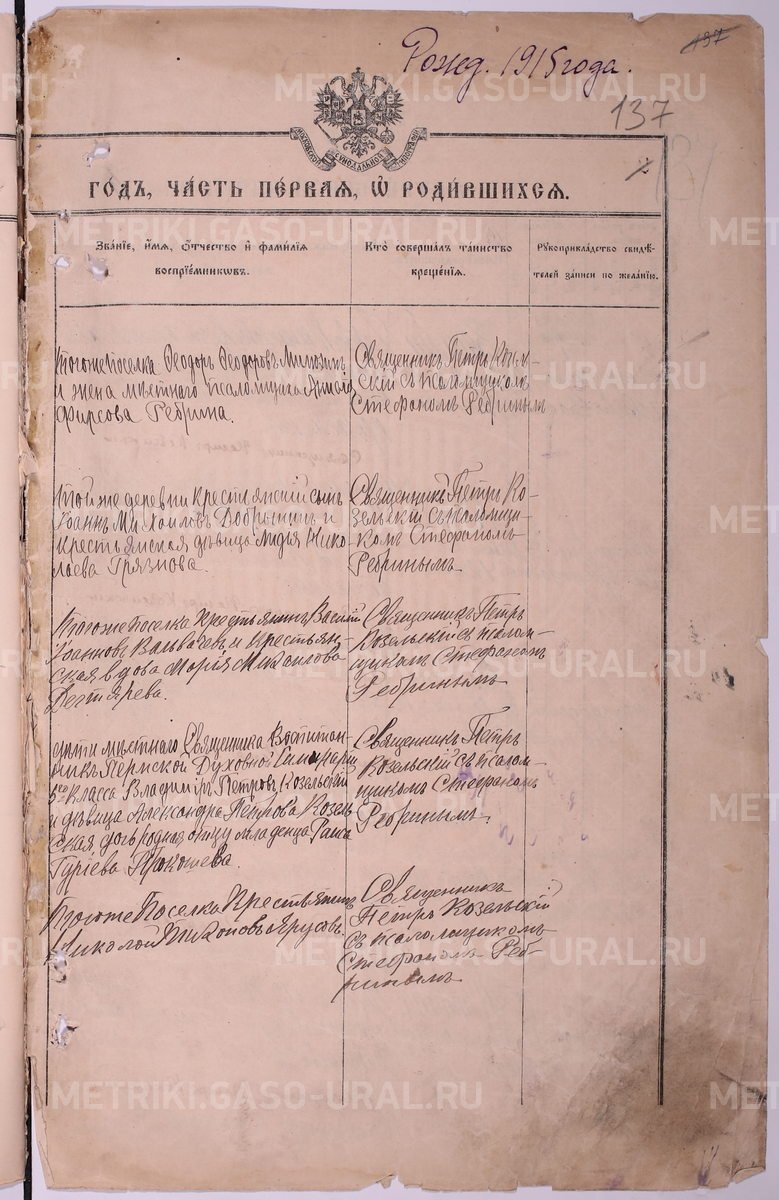 Рожд. 1915 года.
137
137
МОСКОВСКОЙ СѴНОДАЛЬНОЙ ТИПОГРАФІИ
ГОДЪ, ЧАСТЬ ПЕРВАЯ, Ѿ РОДИВШИХСЯ.
Званіе, имя, отчество и фамилія
воспріемниковъ.
Кто совершалъ таинство
крещенія.
Рукоприкладство свидѣ-
телей записи по желанію.
Тогоже поселка Ѳеодоръ Ѳеодоровъ
и жена мѣстнаго псаломщика
Фирсова Ребрина.
Священникъ Петръ Козель-
скій съ псаломщикомъ
Стефаномъ Ребринымъ
Той же деревни крестьянскій сынъ
Іоаннъ Михаиловъ Добрынинъ и
крестьянская дѣвица Лидія Нико-
лаева Грязнова.
Священникъ Петръ Ко-
зельскій съ псаломщи-
комъ Стефаномъ
Ребринымъ
Тогоже поселка крестьянинъ Василій
Іоанновъ Вальвачевъ и крестьян-
ская вдова Марія Михаилова
Дегтярева.
Священникъ Петръ
Козельскій съ псалом-
щикомъ Стефаномъ
Ребринымъ
дѣти мѣстнаго Священника Воспитан-
никъ Пермской Духовной Семинаріи
5го класса Владиміръ Петровъ Козельскій
и дѣвица Александра Петрова Козель
ская, отцу младенца Раиса
Гуріева Прокошева.
Священникъ Петръ
Козельскій съ псалом-
щикомъ Стефаномъ
Ребринымъ.
Тогоже Поселка Крестьянинъ
Николай Тихоновъ Ярусовъ.
Священникъ
Петръ Козельскій
съ псаломщикомъ
Стефаномъ Реб-
ринымъ
METRIKI.GASO-URAL.RU